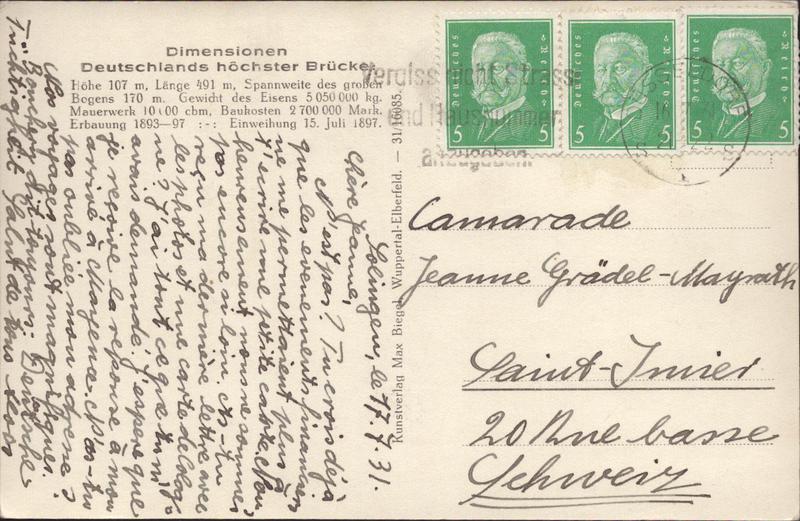 Dimensionen
Deutschlands höchster Brücke.
Höhe 107 m, Länge 491 m, Spannweite des großen
Bogens 170 m. Gewicht des Eisens 5 050 000 kg.
Mauerwerk 10 000 cbm, Baukosten 2 700 000 Mark.
Erbauung 1893—97 :-: Einweihung 15. Juli 1897.
Solingen, le 17.7.31.
Chère Jeanne,
N'est pas? Tu crois déjà
que les évenements financiers
ne me permettaient plus de
t'écrire une petite carte. Mais
heureusement nous ne sommes
pas encore si loin. As-tu
reçu ma dernière lettre avec
les photos et une carte de Colog-
ne? J'ai tout ce que tu m'
avais demandé. J'espère que
je reçoive la réponse à mon
arrivé à Mayence. N'as-tu
pas oubliée mon adresse?
Mes voyages sont magnifiques.
dit toujours: Deutsche
Tüchtigkeit. Salut de tous
Kunstverlag Max Biegel, Wuppertal-Elberfeld. — 31/16085.
Deutsches Reich
5 5
Deutsches Reich
5 5
Deutsches Reich
5 5
Vergiss nicht Strasse
und Hausnummer
anzugeben
Camarade
Jeanne Grädel-Mayrath
Saint-Imier
20 Rue basse
Schweiz